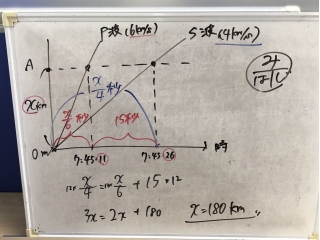 P波(6km/s) S波(4km/s)
A
x km
x/4 秒
x/6 秒
15秒
0m
7:45:11 7:45:26 時
12× x/4 =12× x/6 + 15×12
3x = 2x + 180
x = 180 km